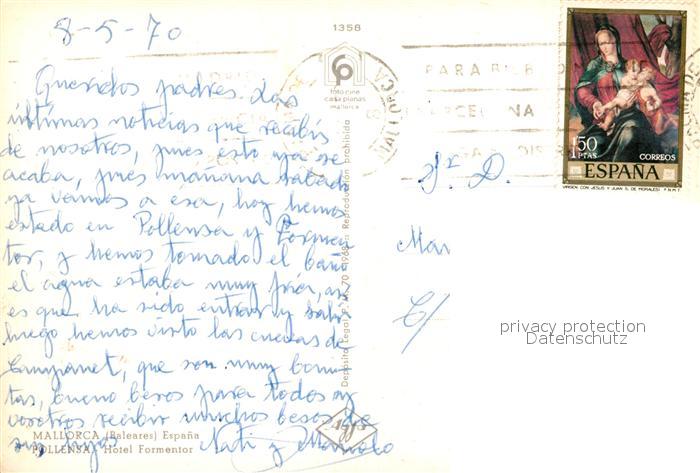 8-5-70
Queridos padres. Las
últimas noticias que recibís
de nosotros, pues esto ya se
acaba, pues mañana sábado
ya vamos a esa, hoy hemos
estado en Pollensa y Formen
tor, y hemos tomado el baño
el agua estaba muy fría, así
es que ha sido entrar y salir
luego hemos visto las cuevas de
Campanet, que son muy boni-
tas, bueno besos para todos y
vosotros recibir muchos besos de
sus hijos Nati y Manolo
MALLORCA (Baleares) España
POLLENSA - Hotel Formentor
1358
foto cine
casa planas
mallorca
Deposito Legal P. M. 70 - 1968 - Reproducción prohibida
Agfa
PARA
1'50
PTAS
CORREOS
ESPAÑA
VIRGEN CON JESUS Y JUAN (L. DE MORALES) F N M T
Sr. D.
Mar
C/
privacy protection
Datenschutz